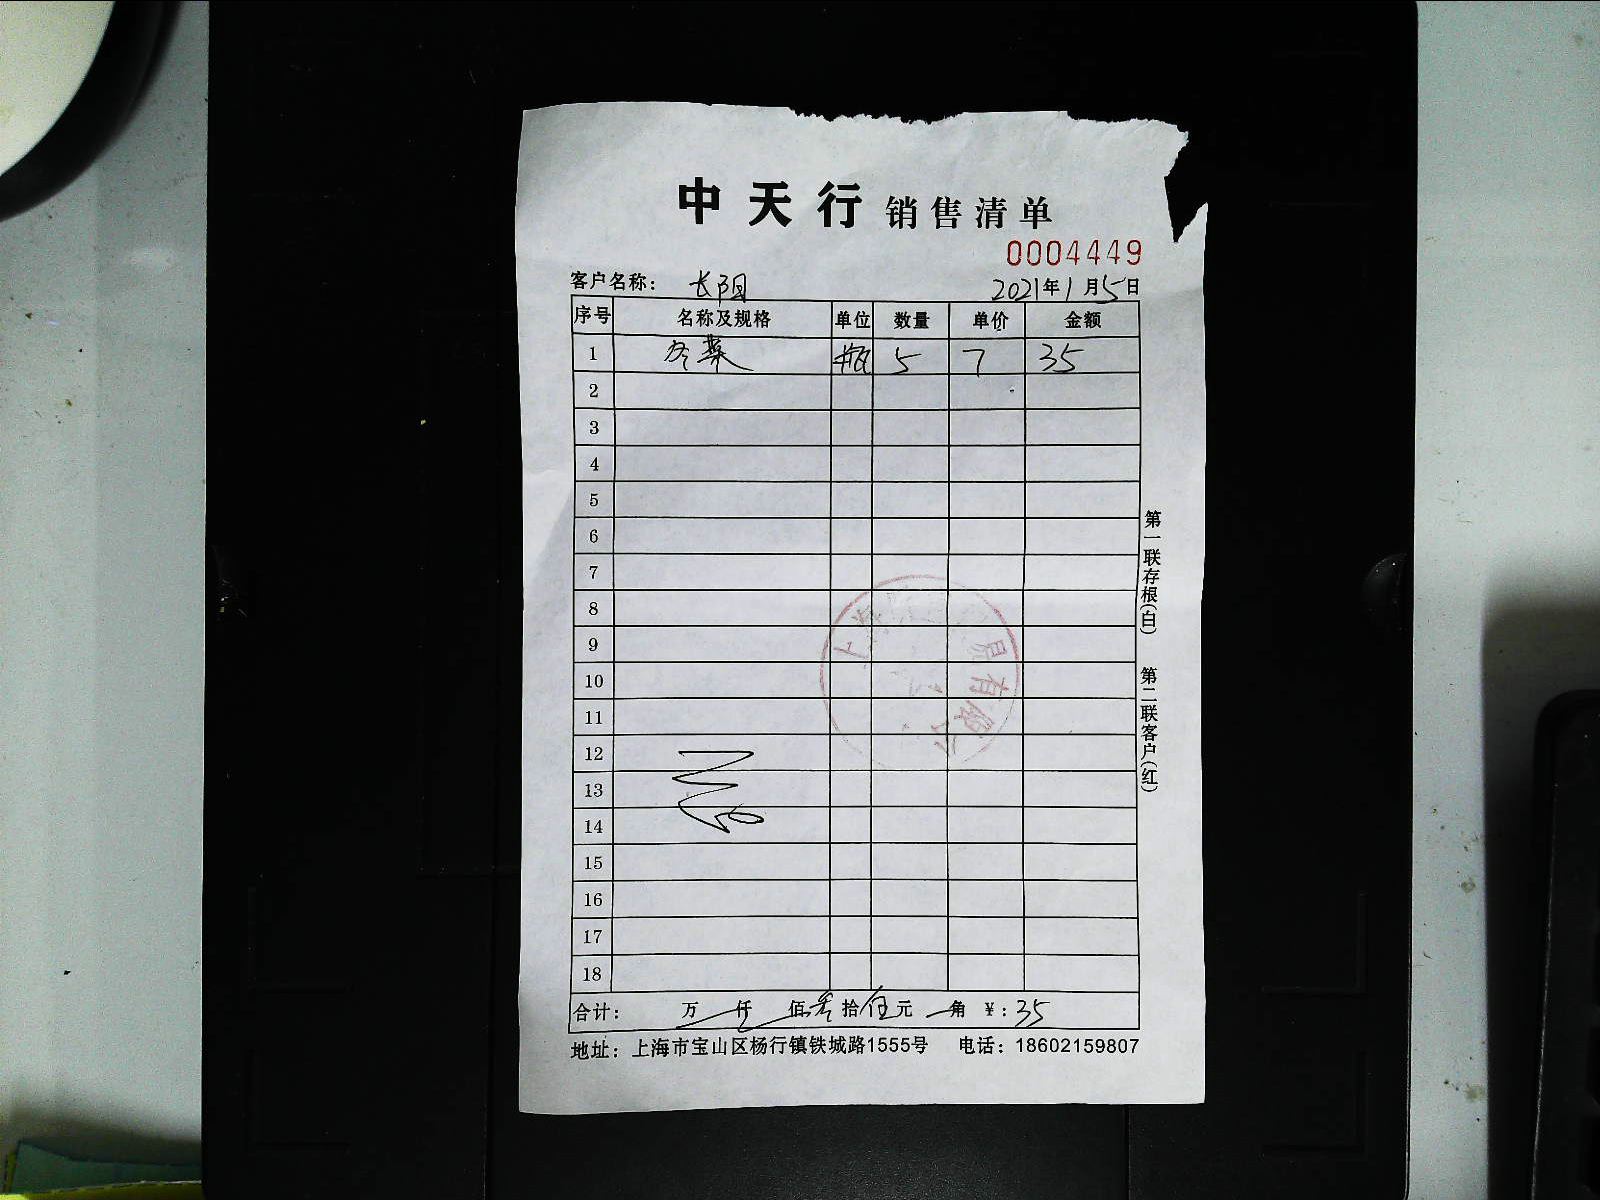 中天行 销售清单
0004449
客户名称： 长阳 2021年1月5日
序号 名称及规格 单位 数量 单价 金额
1 冷藥 瓶 5 7 35
2
3
4
5
6
7
8
9
10
11
12
13
14
15
16
17
18
合计： 万 仟 佰叁拾伍元 角 ￥:35
地址：上海市宝山区杨行镇铁城路1555号 电话：18602159807
第一联存根(白) 第二联客户(红)
上海 贸易有限公